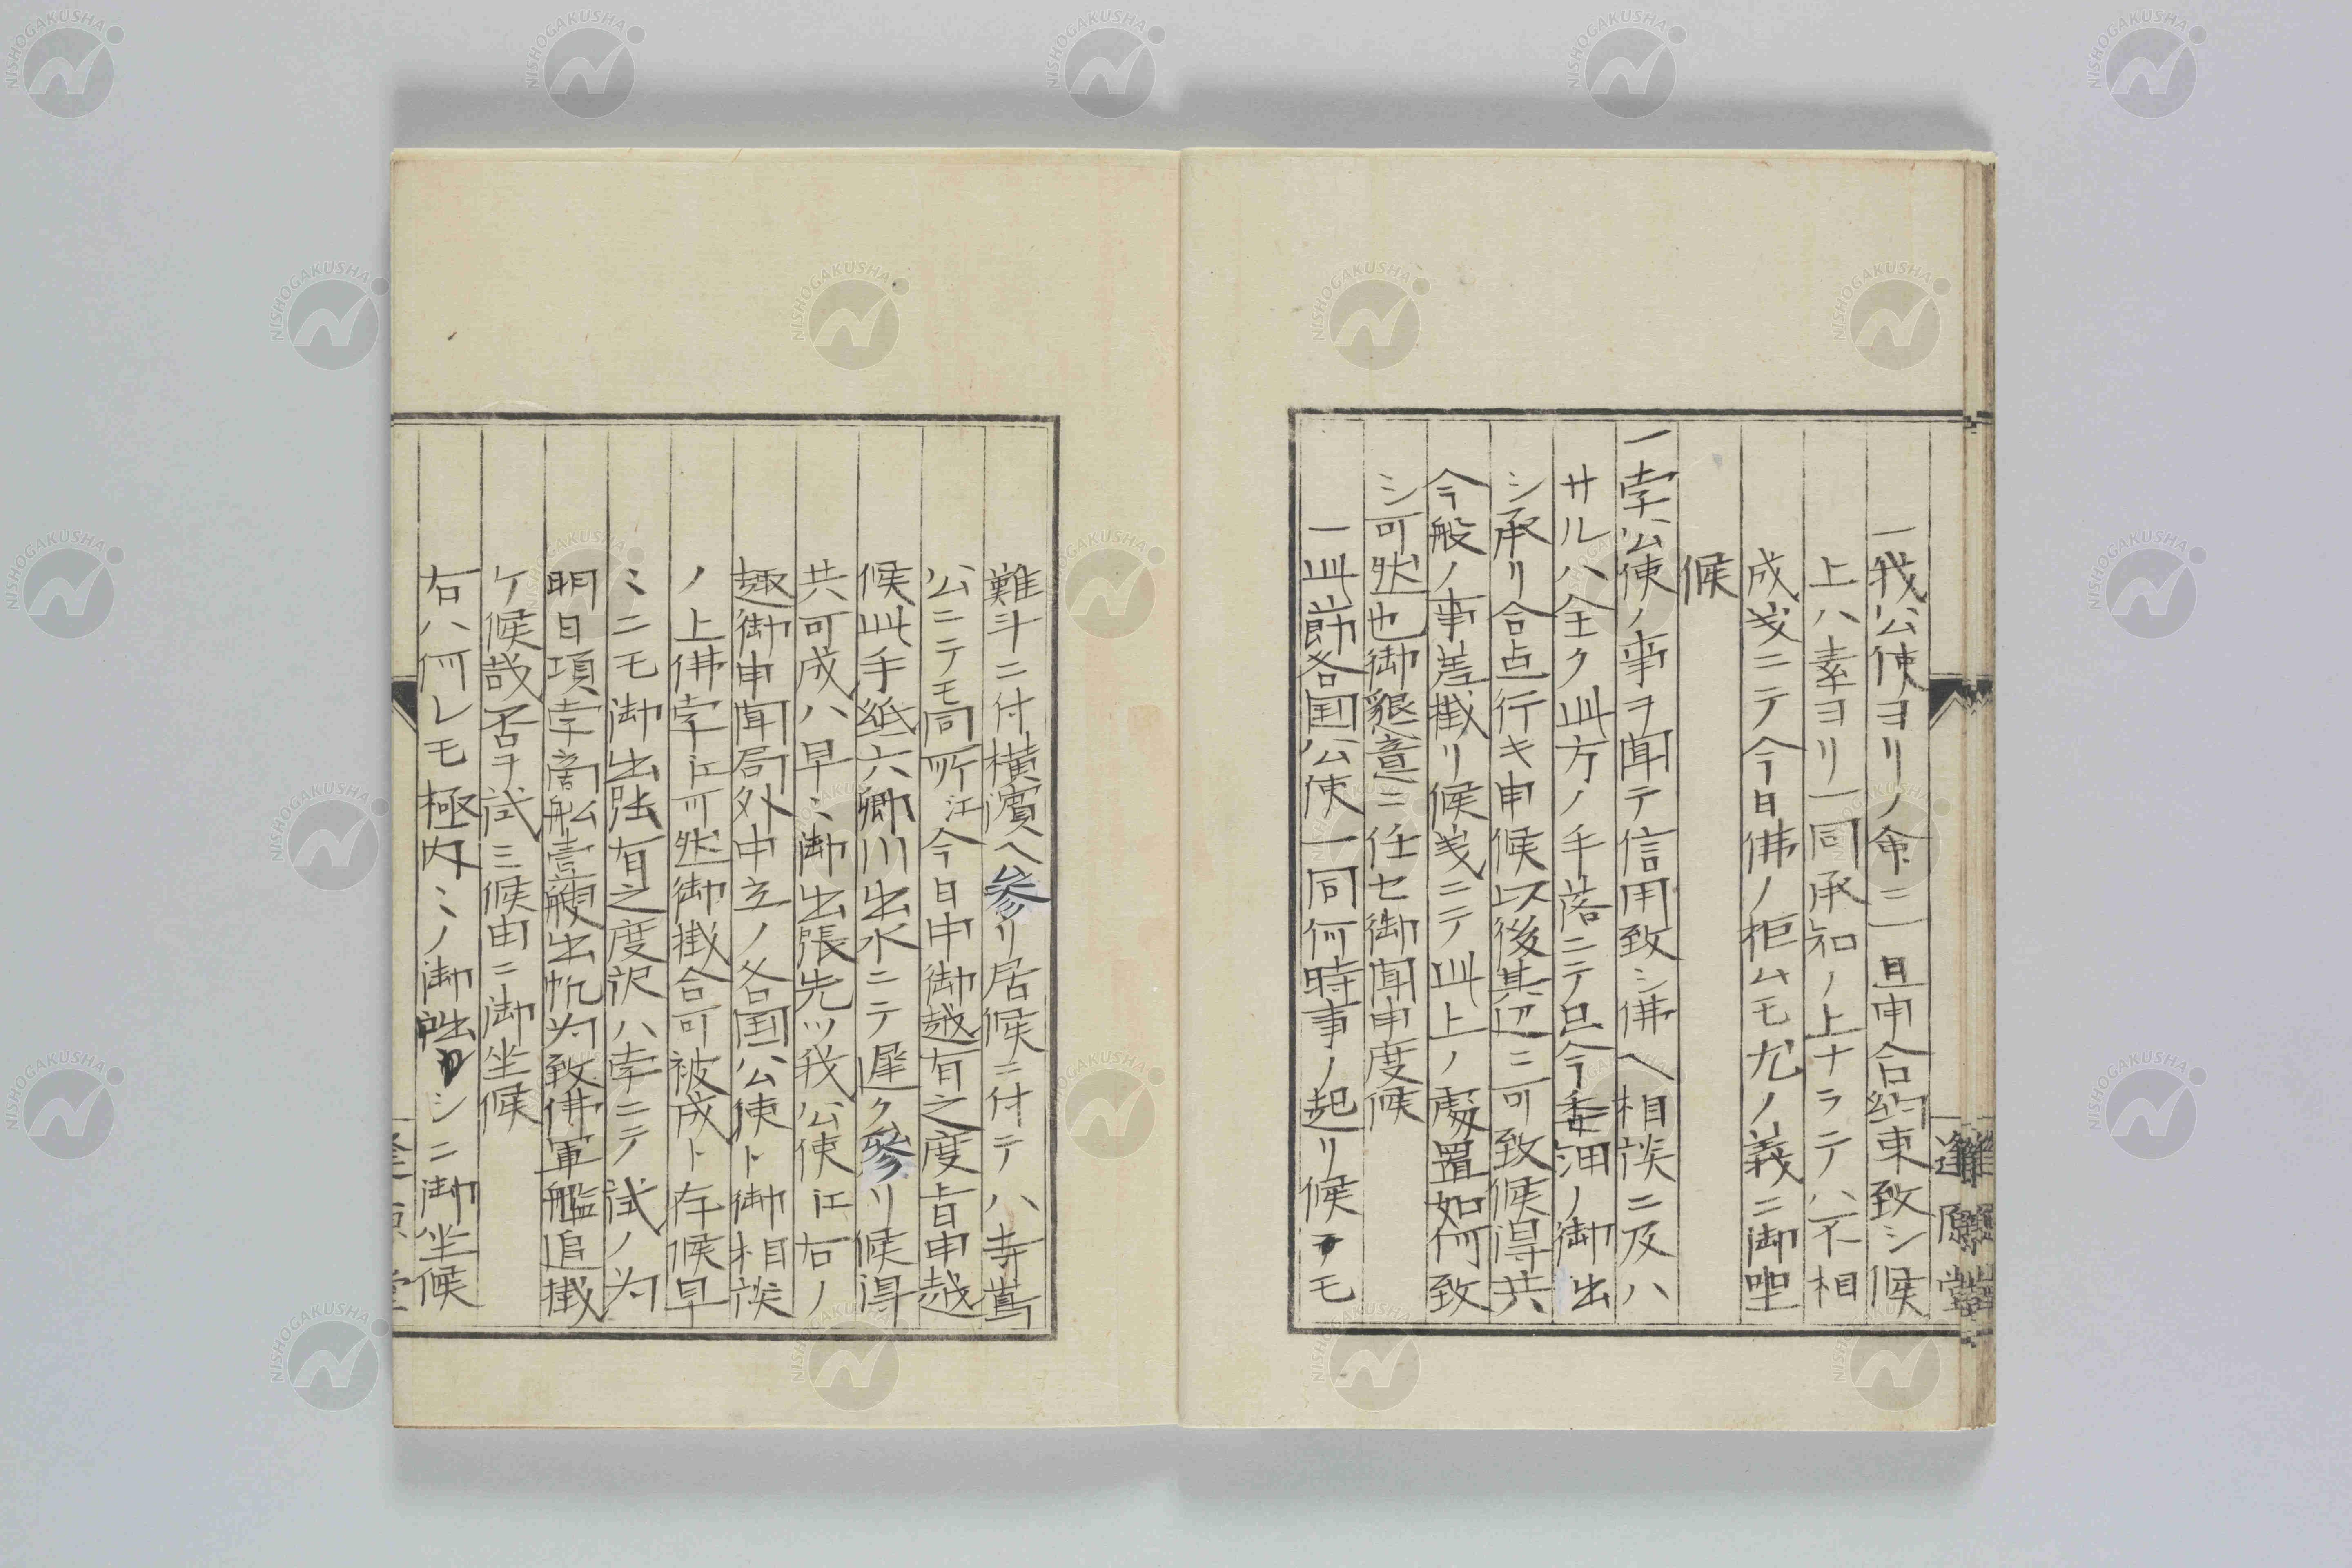 一我公使ヨリノ命ニ一旦申合約束致シ候
上ハ素ヨリ一同承知ノ上ナラテハ不相
成義ニテ今日佛ノ拒ムモ尤ノ義ニ御坐
候
一孛公使ノ事ヲ聞テ信用致シ佛ヘ相談ニ及ハ
サルハ全ク此方ノ手落ニテ已今委細ノ御出
シ承リ合点行キ申候以後其辺ニ可致候得共
今般ノ事差掛リ候義ニテ此上ノ處置如何致
シ可然也御懇意ニ任セ御聞申度候
一此節各国公使一同何時事ノ起リ候テモ
難斗ニ付横濱ヘ参リ居候ニ付テハ寺嶌
公ニテモ同所江今日中御越有之度旨申越
候此手紙六郷川出水ニテ遅ク参リ候得
共可成ハ早ミ御出張先ツ我公使江右ノ
趣御申聞局外中立ノ各国公使ト御相談
ノ上佛孛江可然御掛合可被成ト存候早
ミニモ御出張有之度訳ハ孛ニテ試ノ為
明日項孛商舩壹艘出帆為致佛軍艦追掛
ケ候哉否ヲ試ミ候由ニ御坐候
右ハ何レモ極内ミノ御咄シニ御坐候
逢原堂
NISHOGAKUSHA